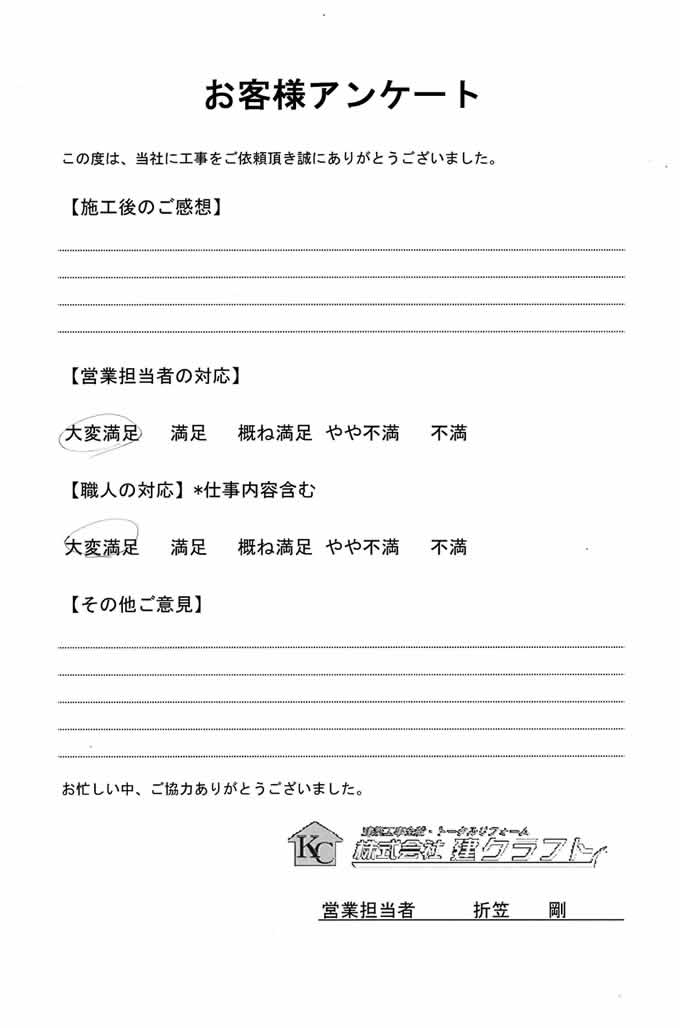 お客様アンケート
この度は、当社に工事をご依頼頂き誠にありがとうございました。
【施工後のご感想】
【営業担当者の対応】
大変満足 満足 概ね満足 やや不満 不満
【職人の対応】*仕事内容含む
大変満足 満足 概ね満足 やや不満 不満
【その他ご意見】
お忙しい中、ご協力ありがとうございました。
KC
建築工事全般・トータルリフォーム
株式会社 建クラフト
営業担当者 折笠 剛